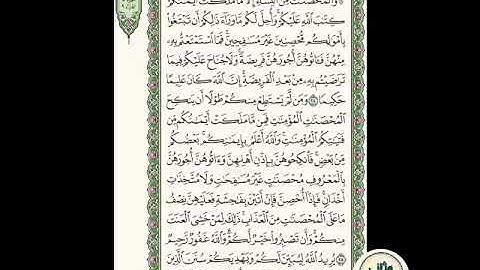 وَالْمُحْصَنَٰتُ مِنَ النِّسَآءِ إِلَّا مَا مَلَكَتْ أَيْمَٰنُكُمْ
كِتَٰبَ اللَّهِ عَلَيْكُمْ وَأُحِلَّ لَكُم مَّا وَرَآءَ ذَٰلِكُمْ أَن تَبْتَغُوا
بِأَمْوَٰلِكُم مُّحْصِنِينَ غَيْرَ مُسَٰفِحِينَ فَمَا اسْتَمْتَعْتُم بِهِ
مِنْهُنَّ فَـَٔاتُوهُنَّ أُجُورَهُنَّ فَرِيضَةً وَلَا جُنَاحَ عَلَيْكُمْ فِيمَا
تَرَٰضَيْتُم بِهِ مِن بَعْدِ الْفَرِيضَةِ إِنَّ اللَّهَ كَانَ عَلِيمًا
حَكِيمًا ٢٤ وَمَن لَّمْ يَسْتَطِعْ مِنكُمْ طَوْلًا أَن يَنكِحَ
الْمُحْصَنَٰتِ الْمُؤْمِنَٰتِ فَمِن مَّا مَلَكَتْ أَيْمَٰنُكُم مِّن
فَتَيَٰتِكُمُ الْمُؤْمِنَٰتِ وَاللَّهُ أَعْلَمُ بِإِيمَٰنِكُم بَعْضُكُم
مِّن بَعْضٍ فَانكِحُوهُنَّ بِإِذْنِ أَهْلِهِنَّ وَءَاتُوهُنَّ أُجُورَهُنَّ
بِالْمَعْرُوفِ مُحْصَنَٰتٍ غَيْرَ مُسَٰفِحَٰتٍ وَلَا مُتَّخِذَٰتِ
أَخْدَانٍ فَإِذَا أُحْصِنَّ فَإِنْ أَتَيْنَ بِفَٰحِشَةٍ فَعَلَيْهِنَّ نِصْفُ
مَا عَلَى الْمُحْصَنَٰتِ مِنَ الْعَذَابِ ذَٰلِكَ لِمَنْ خَشِيَ الْعَنَتَ
مِنكُمْ وَأَن تَصْبِرُوا خَيْرٌ لَّكُمْ وَاللَّهُ غَفُورٌ رَّحِيمٌ
٢٥ يُرِيدُ اللَّهُ لِيُبَيِّنَ لَكُمْ وَيَهْدِيَكُمْ سُنَنَ الَّذِينَ